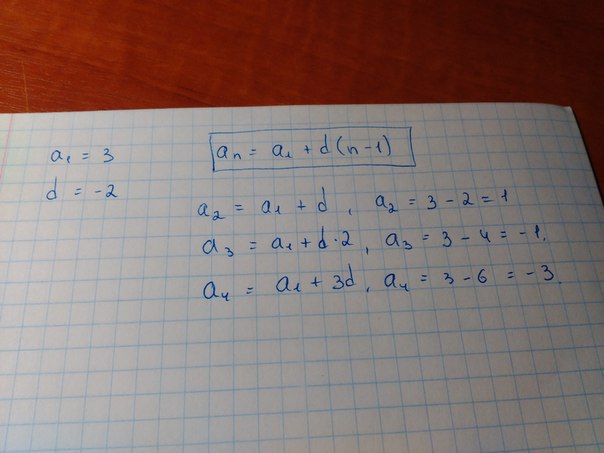 a₁ = 3
d = -2
aₙ = a₁ + d(n-1)
a₂ = a₁ + d, a₂ = 3 - 2 = 1
a₃ = a₁ + d·2, a₃ = 3 - 4 = -1.
a₄ = a₁ + 3d, a₄ = 3 - 6 = -3.